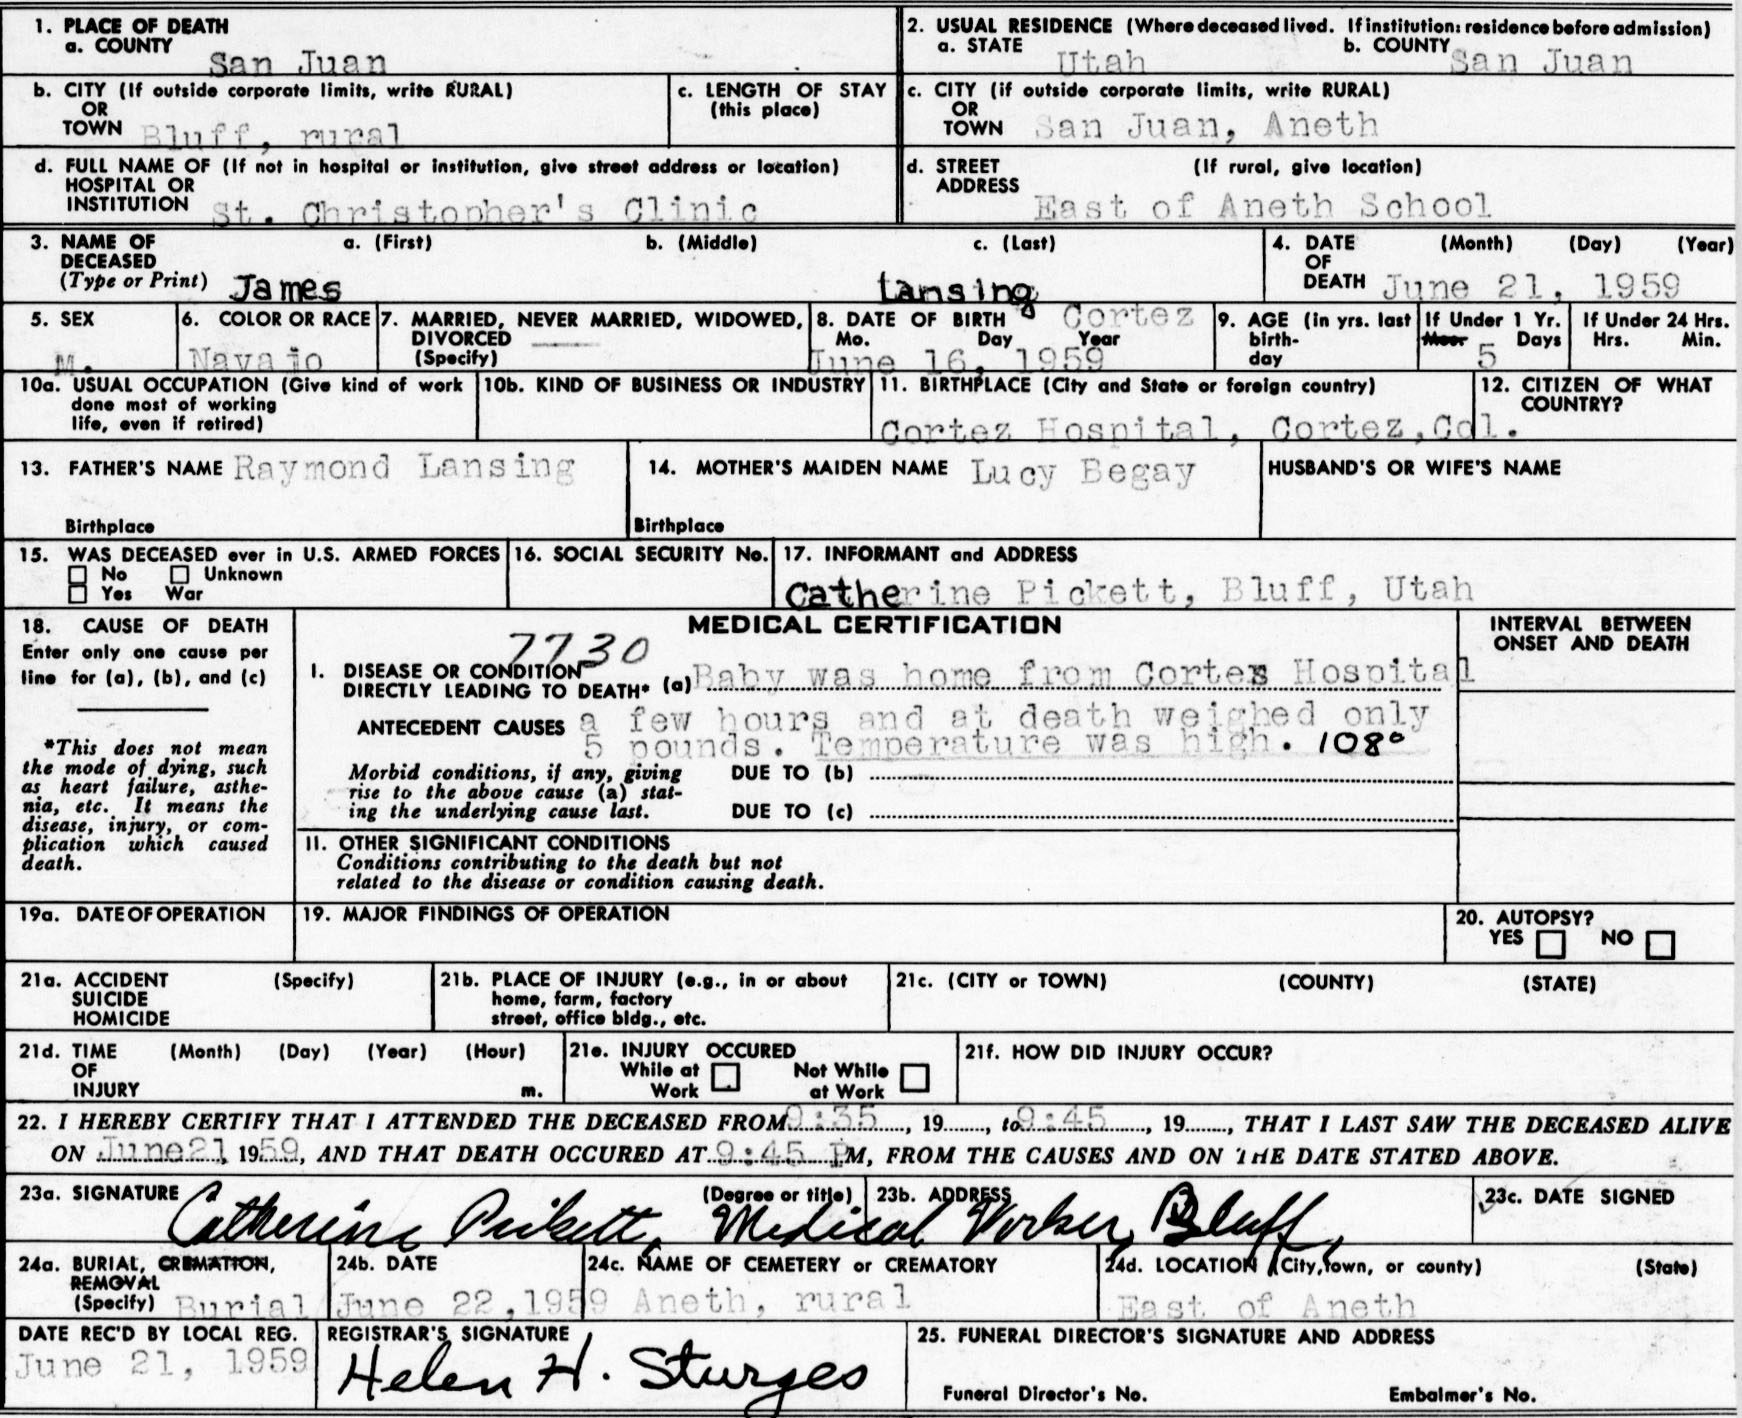 1. PLACE OF DEATH
a. COUNTY San Juan
2. USUAL RESIDENCE (Where deceased lived. If institution: residence before admission)
a. STATE Utah b. COUNTY San Juan
b. CITY (If outside corporate limits, write RURAL)
OR
TOWN Bluff, rural
c. LENGTH OF STAY
(this place)
c. CITY (if outside corporate limits, write RURAL)
OR
TOWN San Juan, Aneth
d. FULL NAME OF (If not in hospital or institution, give street address or location)
HOSPITAL OR
INSTITUTION St. Christopher's Clinic
d. STREET (If rural, give location)
ADDRESS East of Aneth School
3. NAME OF a. (First) b. (Middle) c. (Last)
DECEASED
(Type or Print) James Lansing
4. DATE (Month) (Day) (Year)
OF
DEATH June 21, 1959
5. SEX
M.
6. COLOR OR RACE
Navajo
7. MARRIED, NEVER MARRIED, WIDOWED,
DIVORCED
(Specify)
8. DATE OF BIRTH Cortez
Mo. Day Year
June 16, 1959
9. AGE (in yrs. last
birth-
day
If Under 1 Yr.
Mos. Days
5
If Under 24 Hrs.
Hrs. Min.
10a. USUAL OCCUPATION (Give kind of work
done most of working
life, even if retired)
10b. KIND OF BUSINESS OR INDUSTRY
11. BIRTHPLACE (City and State or foreign country)
Cortez Hospital, Cortez, Col.
12. CITIZEN OF WHAT
COUNTRY?
13. FATHER'S NAME Raymond Lansing
Birthplace
14. MOTHER'S MAIDEN NAME Lucy Begay
Birthplace
HUSBAND'S OR WIFE'S NAME
15. WAS DECEASED ever in U.S. ARMED FORCES
No Unknown
Yes War
16. SOCIAL SECURITY No.
17. INFORMANT and ADDRESS
Catherine Pickett, Bluff, Utah
18. CAUSE OF DEATH
Enter only one cause per
line for (a), (b), and (c)
*This does not mean
the mode of dying, such
as heart failure, asthe-
nia, etc. It means the
disease, injury, or com-
plication which caused
death.
MEDICAL CERTIFICATION
7730
I. DISEASE OR CONDITION
DIRECTLY LEADING TO DEATH* (a) Baby was home from Cortez Hospital
ANTECEDENT CAUSES a few hours and at death weighed only
5 pounds. Temperature was high. 108°
Morbid conditions, if any, giving DUE TO (b)
rise to the above cause (a) stat-
ing the underlying cause last. DUE TO (c)
INTERVAL BETWEEN
ONSET AND DEATH
II. OTHER SIGNIFICANT CONDITIONS
Conditions contributing to the death but not
related to the disease or condition causing death.
19a. DATE OF OPERATION
19. MAJOR FINDINGS OF OPERATION
20. AUTOPSY?
YES NO
21a. ACCIDENT (Specify)
SUICIDE
HOMICIDE
21b. PLACE OF INJURY (e.g., in or about
home, farm, factory
street, office bldg., etc.
21c. (CITY or TOWN) (COUNTY) (STATE)
21d. TIME (Month) (Day) (Year) (Hour)
OF
INJURY m.
21e. INJURY OCCURED
While at Not While
Work at Work
21f. HOW DID INJURY OCCUR?
22. I HEREBY CERTIFY THAT I ATTENDED THE DECEASED FROM 9:35, 19......, to 9:45, 19......, THAT I LAST SAW THE DECEASED ALIVE
ON June 21, 1959, AND THAT DEATH OCCURED AT 9:45 PM, FROM THE CAUSES AND ON THE DATE STATED ABOVE.
23a. SIGNATURE (Degree or title) 23b. ADDRESS 23c. DATE SIGNED
Catherine Pickett, Medical Worker, Bluff,
24a. BURIAL, CREMATION,
REMOVAL
(Specify) Burial
24b. DATE
June 22, 1959
24c. NAME OF CEMETERY or CREMATORY
Aneth, rural
24d. LOCATION (City, town, or county) (State)
East of Aneth
DATE REC'D BY LOCAL REG.
June 21, 1959
REGISTRAR'S SIGNATURE
Helen H. Sturges
25. FUNERAL DIRECTOR'S SIGNATURE AND ADDRESS
Funeral Director's No. Embalmer's No.